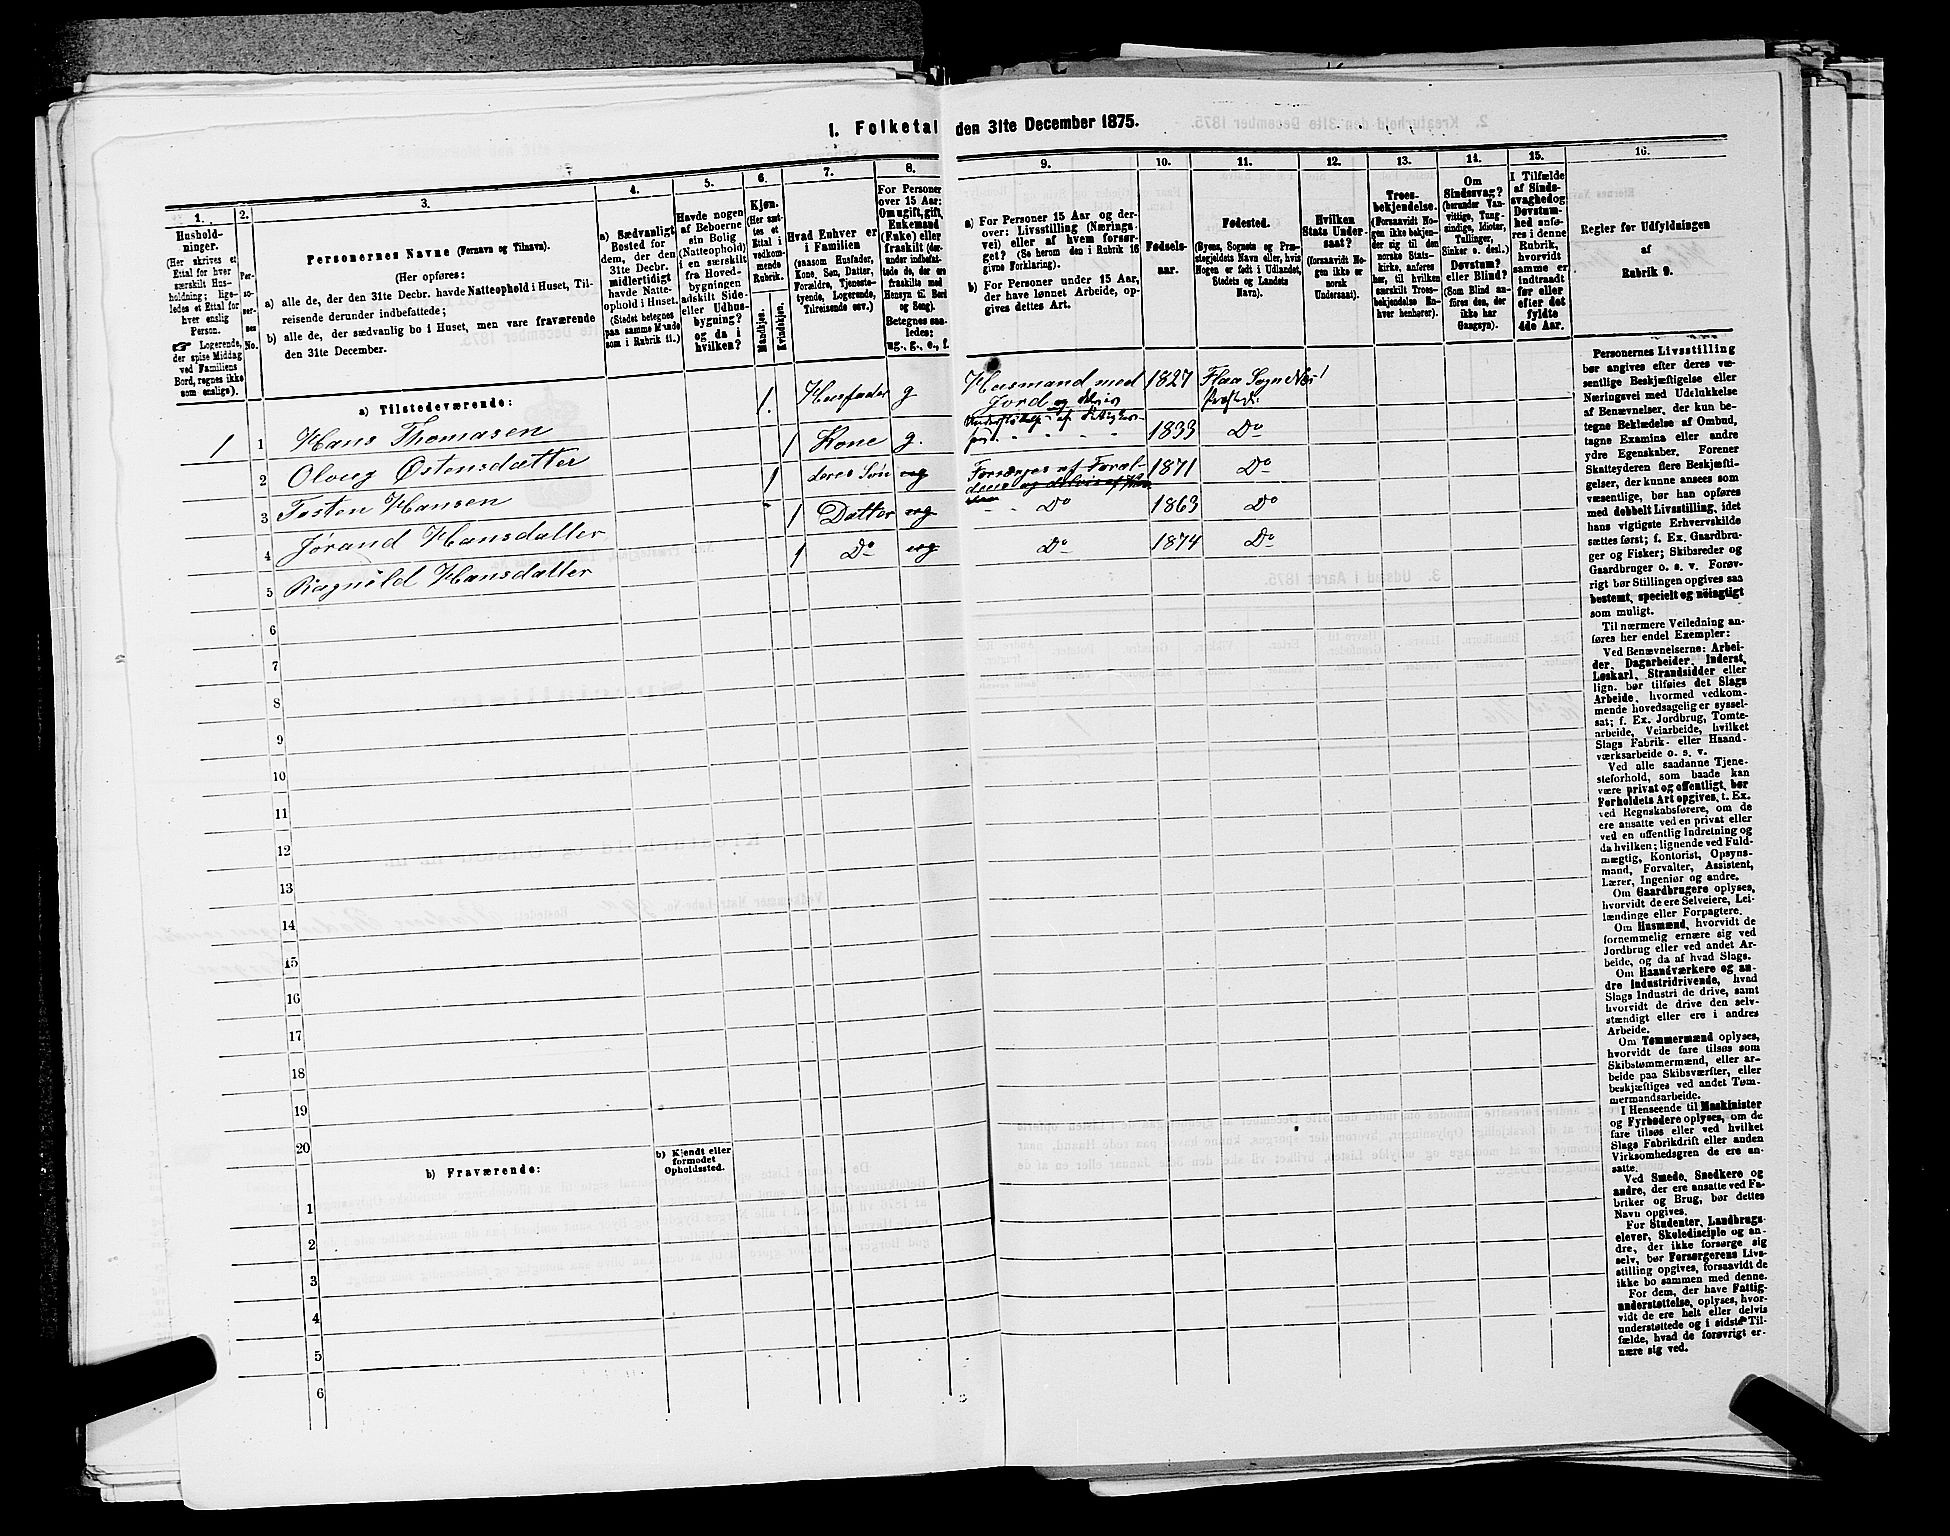 1. Folketal den 31te December 1875.
1.
2.
3.
4.
5.
6.
7.
8.
9.
10.
11.
12.
13.
14.
15.
16.
Hushold-
ninger.
(Her skrives et
Ettal for hver
særskilt Hus-
holdning; lige-
ledes et Ettal for
hver enslig
Person.
☞ Logerende,
der spise Middag
ved Familiens
Bord, regnes ikke
som enslige).
Per-
so-
ner-
nes
No.
Personernes Navne (Fornavn og Tilnavn).
(Her opføres:
a) alle de, der den 31te Decbr. havde Natteophold i Huset, Til-
reisende derunder indbefattede;
b) alle de, der sædvanlig bo i Huset, men vare fraværende
den 31te December.
a) Sædvanligt
Bosted for
dem, der den
31te Decbr.
midlertidigt
havde Natte-
ophold i Huset.
(Stedet betegnes
paa samme Maade
som i Rubrik 11.)
Havde nogen
af Beboerne
sin Bolig
(Natteophold)
i en særskilt
fra Hoved-
bygningen
adskilt Side-
eller Udhus-
bygning?
og da i
hvilken?
Kjøn.
(Her sæt-
tes et
Ettal i
vedkom-
mende
Rubrik.
Mandkjøn.
Kvindekjøn.
Hvad Enhver er
i Familien
(saasom Husfader,
Kone, Søn, Datter,
Forældre, Tjeneste-
tyende, Logerende,
Tilreisende osv.)
For Personer
over 15 Aar:
Om ugift, gift,
Enkemand
(Enke) eller
fraskilt (der-
under indbefat-
tede de, der ere
fraskilte med
Hensyn til Bord
og Seng).
Betegnes saa-
ledes:
ug., g., e., f.
a) For Personer 15 Aar og der-
over: Livsstilling (Nærings-
vei) eller af hvem forsør-
get? (Se herom den i Rubrik 16
givne Forklaring).
b) For Personer under 15 Aar,
der have lønnet Arbeide, op-
gives dettes Art.
Fødsels-
aar.
Fødested.
(Byens, Sognets og Præ-
stegjeldets Navn eller, hvis
Nogen er født i Udlandet,
Stedets og Landets
Navn).
Hvilken
Stats Under-
saat?
(forsaavidt No-
gen ikke er
norsk
Undersaat).
Troes-
bekjendelse.
(Forsaavidt No-
gen ikke bekjen-
der sig til den
norske Stats-
kirke, anføres
her, til hvilken
særskilt Troes-
bekjendelse En-
hver henhører).
Om
Sindssvag?
(herunder Van-
vittige, Tung-
sindige, Idioter,
Tullinger,
Sinker o. desl.)
Døvstum?
eller Blind?
(Som Blind an-
føres den, der
ikke har
Gangsyn).
I Tilfælde
af Sinds-
svaghed og
Døvstum-
hed anfø-
res i denne
Rubrik,
hvorvidt
samme er
indtraadt
før eller
efter det
fyldte
4de Aar.
Regler for Udfyldningen
af
Rubrik 9.
a) Tilstedeværende:
1 1 Hans Thomasen 1. Husfader g Husmand med Jord og delvis 1827 Flaa Sogn Næs Præstgj:
2 Olvug Østensdatter 1 Kone g. 1833 Do
3 Tosten Hansen 1 deres Søn ug Forsørges af Foræl- 1871 Do
4 Jørand Hansdatter 1 Datter ug Do 1863 Do
5 Ragnild Hansdatter 1 Do ug Do 1874 Do
6
7
8
9
10
11
12
13
14
15
16
17
18
19
20
b) Fraværende:
b) Kjendt eller
formodet
Opholdssted.
1
2
3
4
5
6
Personernes Livsstilling
bør angives efter deres væ-
sentlige Beskjæftigelse eller
Næringsvei med Udelukkelse
af Benævnelser, der kun be-
tegne Beklædelse af Ombud,
tagne Examina eller andre
ydre Egenskaber. Forener
Skatteyderen flere Beskjæfti-
gelser, der kunne ansees som
væsentlige, bør han opføres
med dobbelt Livsstilling, idet
hans vigtigste Erhvervskilde
sættes først; f. Ex. Gaardbru-
ger og Fisker; Skibsreder og
Gaardbruger o. s. v. Forøv-
rigt bør Stillingen opgives saa
bestemt, specielt og nøiagtigt
som muligt.
Til nærmere Veiledning an-
føres her endel Exempler:
Ved Benævnelserne: Arbei-
der, Dagarbeider, Inderst,
Løskarl, Strandsidder eller
lign. bør tilføies det Slags
Arbeide, hvormed vedkom-
mende hovedsagelig er syssel-
sat; f. Ex. Jordbrug, Tomte-
arbeide, Veiarbeide, hvilket
Slags Fabrik- eller Haand-
værksarbeide o. s. v.
Ved alle saadanne Tjene-
steforhold, som baade kan
være privat og offentligt, bør
Forholdets Art opgives, t. Ex.
ved Regnskabsførere, om de
ere ansatte ved en privat eller
ved en offentlig Indretning og
da hvilken; lignende ved Fuld-
mægtig, Kontorist, Opsyns-
mand, Forvalter, Assistent,
Lærer, Ingeniør og andre.
Om Gaardbrugere oplyses,
hvorvidt de ere Selveiere, Lei-
lændinge eller Forpagtere.
Om Husmænd, hvorvidt de
fornemmelig ernære sig ved
Jordbrug eller ved andet Ar-
beide, og da af hvad Slags.
Om Haandværkere og an-
dre Industridrivende, hvad
Slags Industri de drive, samt
hvorvidt de drive den selv-
stændigt eller ere i andres
Arbeide.
Om Tømmermænd oplyses,
hvorvidt de fare tilsøs som
Skibstømmermænd, eller ar-
beide paa Skibsværfter, eller
beskjæftiges ved andet Tøm-
mermandsarbeide.
I Henseende til Maskinister
og Fyrbødere oplyses, om de
fare tilsøs eller ved hvilket
Slags Fabrikdrift eller anden
Virksomhedsgren de ere an-
satte.
Ved Smede, Snedkere og
andre, der ere ansatte ved Fa-
briker og Brug, bør dettes
Navn opgives.
For Studenter, Landbrugs-
elever, Skoledisciple og an-
dre, der ikke forsørge sig
selv, bør Forsørgerens Livs-
stilling opgives, forsaavidt de
ikke bo sammen med denne.
For dem, der have Fattig-
understøttelse, oplyses, hvor-
vidt de ere helt eller delvis
understøttede og i sidste Til-
fælde, hvad de forøvrigt er-
nære sig ved.